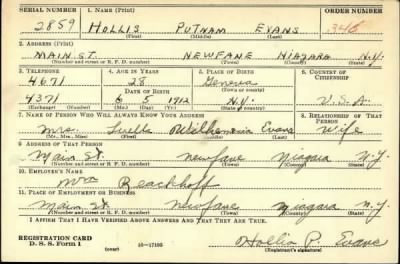 SERIAL NUMBER 1. NAME (Print) ORDER NUMBER
2859 HOLLIS PUTNAM EVANS 346
(First) (Middle) (Last)
2. ADDRESS (Print)
MAIN ST. NEWFANE NIAGARA N.Y.
(Number and street or R. F. D. number) (Town) (County) (State)
3. TELEPHONE 4. AGE IN YEARS 5. PLACE OF BIRTH 6. COUNTRY OF CITIZENSHIP
4671 28 Geneva
DATE OF BIRTH (Town or county)
4371 6 5 1912 N.Y. U.S.A.
(Exchange) (Number) (Mo.) (Day) (Yr.) (State or country)
7. NAME OF PERSON WHO WILL ALWAYS KNOW YOUR ADDRESS 8. RELATIONSHIP OF THAT PERSON
Mrs. Luella Evans Wife
(Mr., Mrs., Miss) (First) (Middle) (Last)
9. ADDRESS OF THAT PERSON
Main St. Newfane Niagara N.Y.
(Number and street or R. F. D. number) (Town) (County) (State)
10. EMPLOYER'S NAME
Beachhoff
11. PLACE OF EMPLOYMENT OR BUSINESS
Main St. Newfane Niagara N.Y.
(Number and street or R. F. D. number) (Town) (County) (State)
I AFFIRM THAT I HAVE VERIFIED ABOVE ANSWERS AND THAT THEY ARE TRUE.
REGISTRATION CARD
D. S. S. Form 1 (over) 16—17105 Hollis P. Evans
(Registrant's signature)